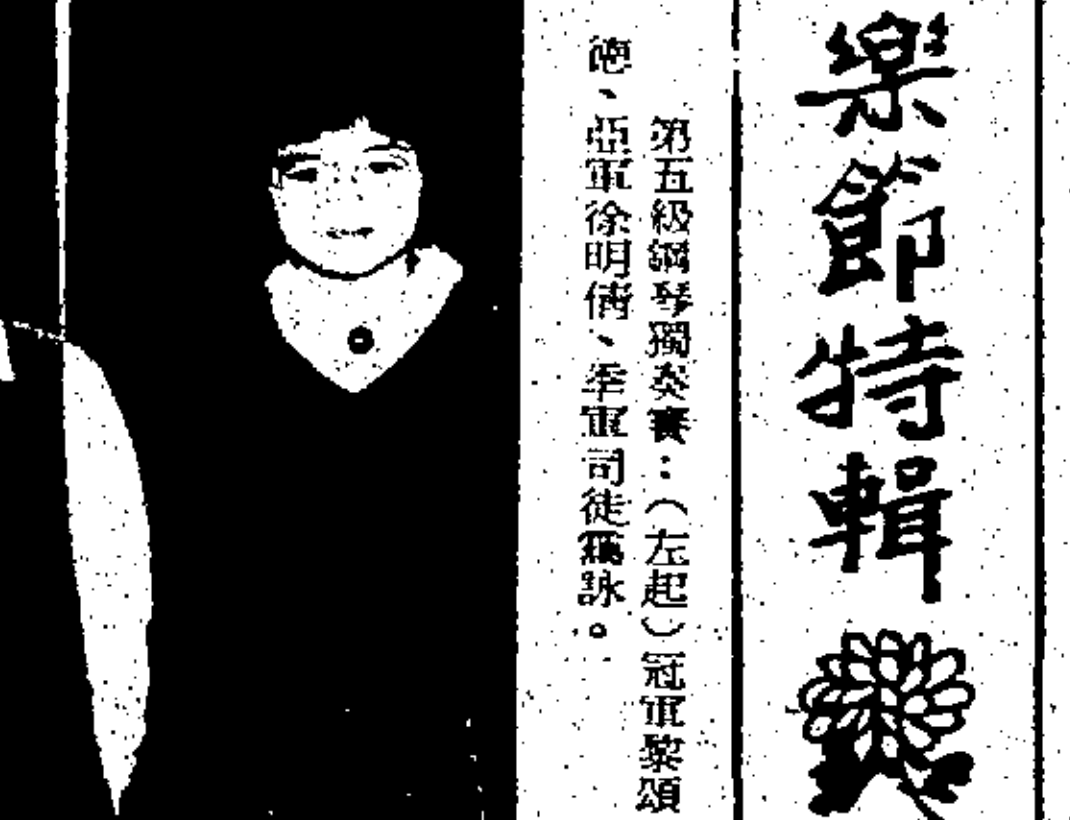 樂節特輯
第五級鋼琴獨奏賽：（左起）冠軍黎頌
德、亞軍徐明倩、季軍司徒珮詠。